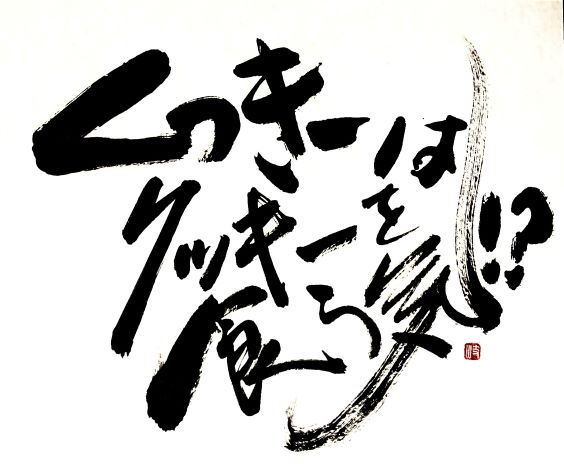 くっきーは
クッキーを
食う気!?